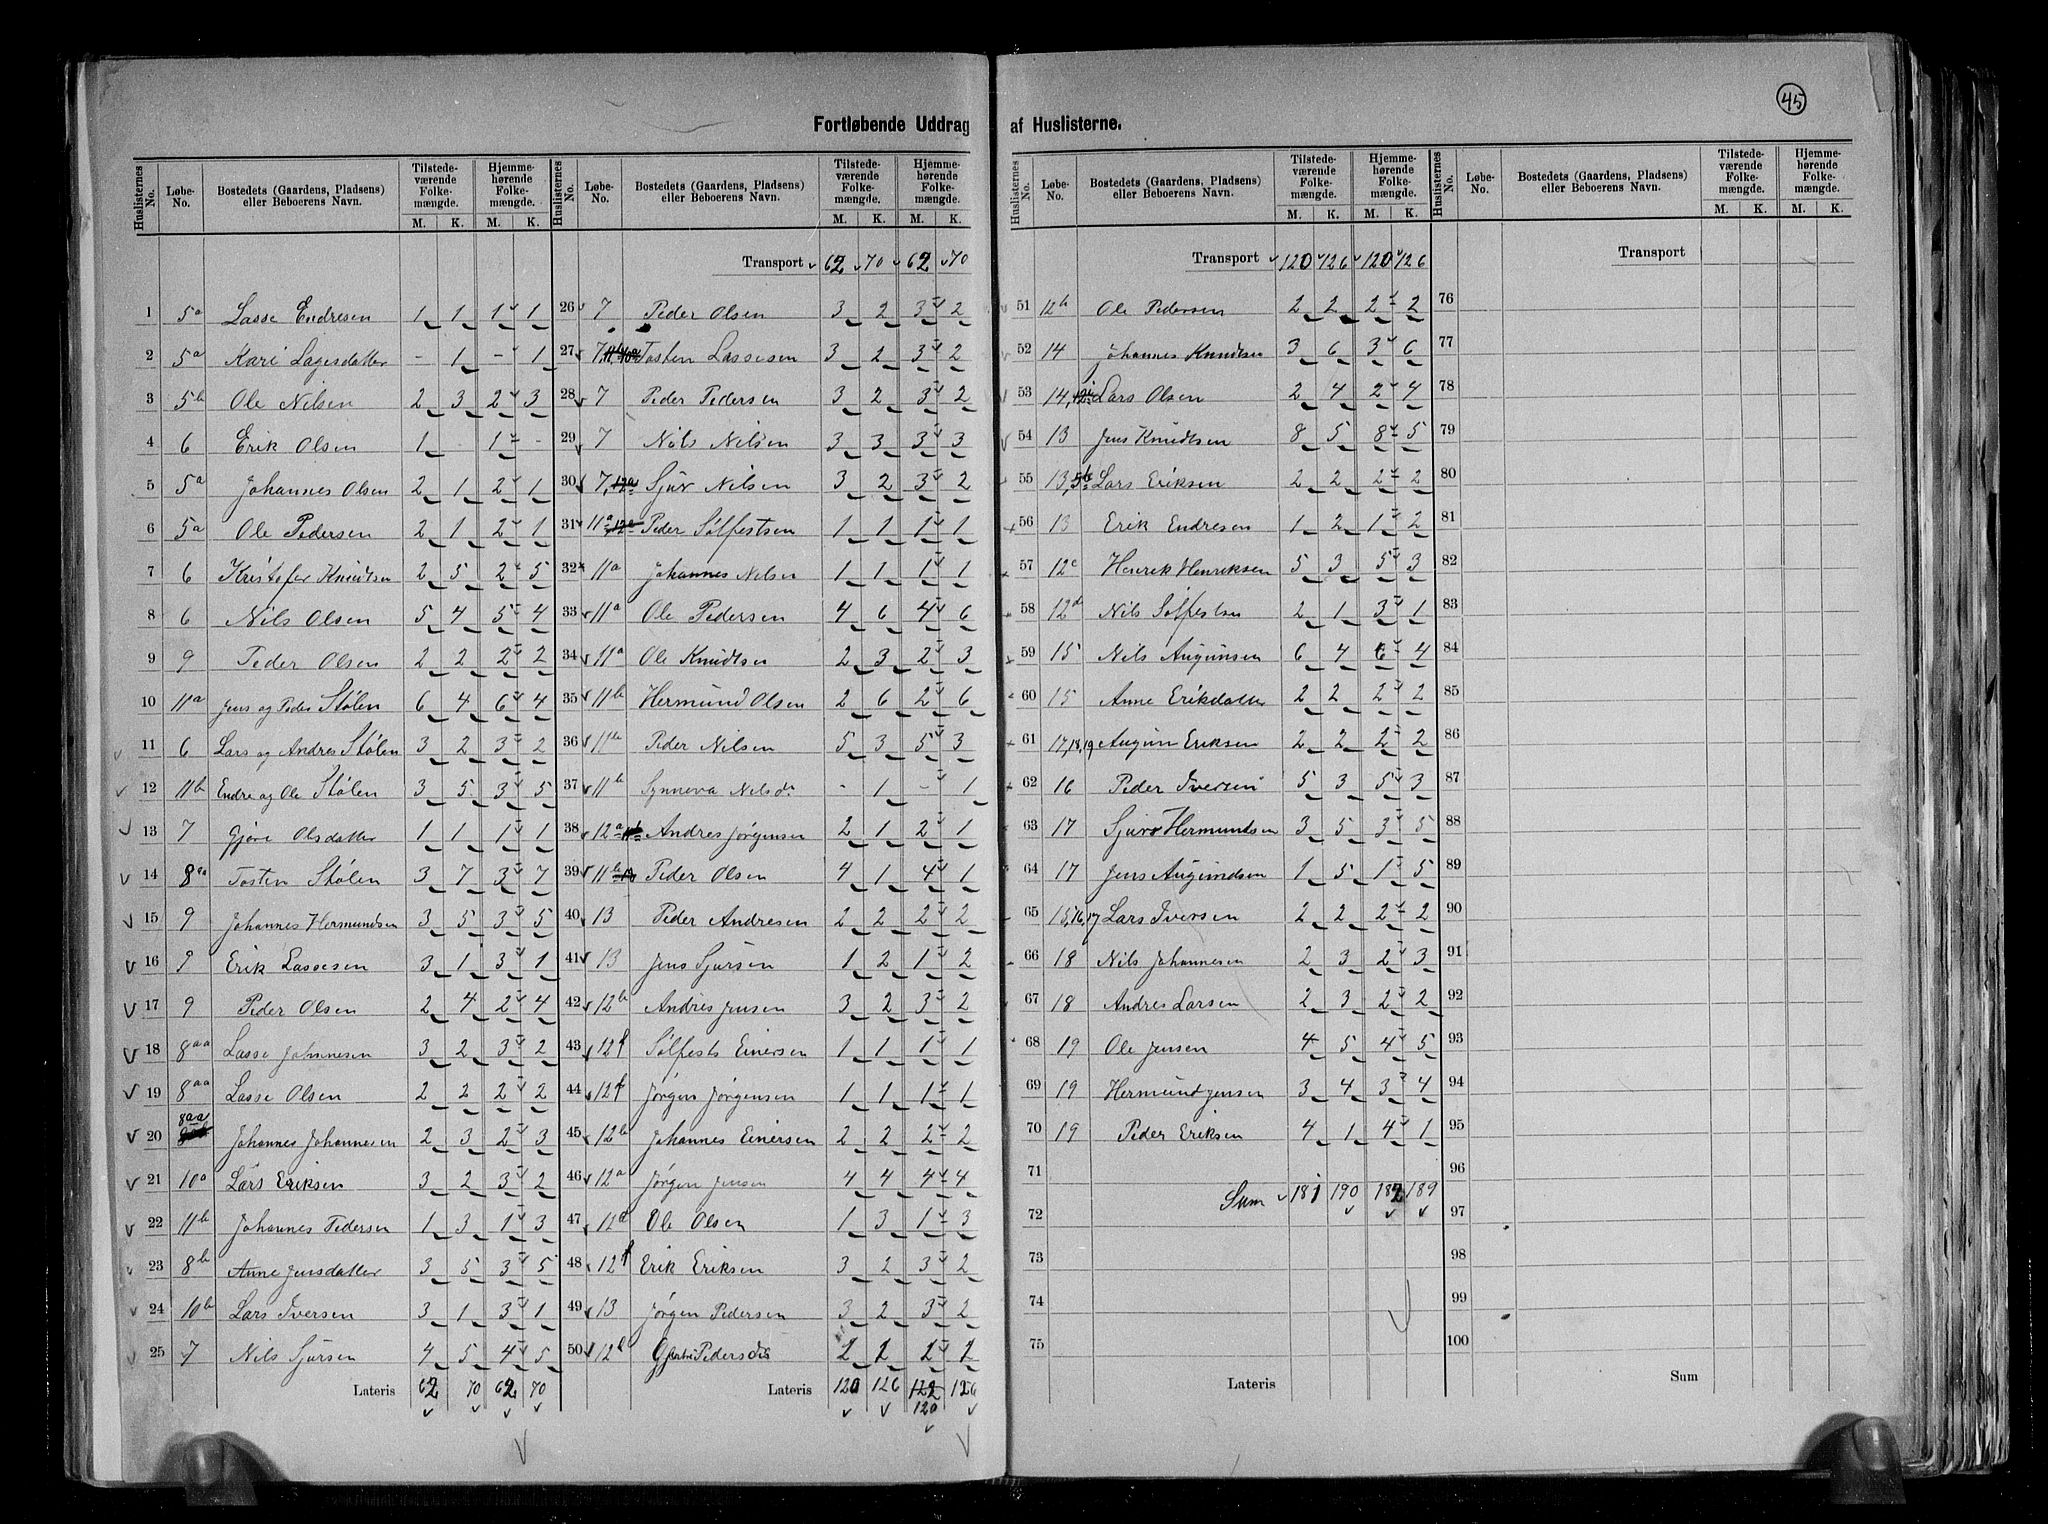 45
Fortløbende Uddrag af Huslisterne.
Huslisternes No. Løbe-No. Bostedets (Gaardens, Pladsens) eller Beboerens Navn. Tilstedeværende Folkemængde. M. K. Hjemmehørende Folkemængde. M. K.
1 5a Lasse Endresen 1 1 1 1
2 5a Kari Lagesdatter - 1 - 1
3 5b Ole Nilsen 2 3 2 3
4 6 Erik Olsen 1 - 1 -
5 5a Johannes Olsen 2 1 2 1
6 5a Ole Pedersen 2 1 2 1
7 6 Kristofer Knudtsen 2 5 2 5
8 6 Nils Olsen 5 4 5 4
9 9 Peder Olsen 2 2 2 2
10 11a Jens og Peder Stølen 6 4 6 4
11 6 Lars og Andres Stølen 3 2 3 2
12 11b Endre og Ole Stølen 3 5 3 5
13 7 Gjøri Olsdatter 1 1 1 1
14 8aa Tosten Stølen 3 7 3 7
15 9 Johannes Hermundsen 3 5 3 5
16 9 Erik Lassesen 3 1 3 1
17 9 Peder Olsen 2 4 2 4
18 8aa Lasse Johannesen 3 2 3 2
19 8aa Lasse Olsen 2 2 2 2
20 8aa Johannes Johannesen 2 3 2 3
21 10a Lars Eriksen 3 2 3 2
22 11b Johannes Pedersen 1 3 1 3
23 8b Anne Jensdatter 3 5 3 5
24 10b Lars Iversen 3 1 3 1
25 7 Nils Sjursen 4 5 4 5
Lateris 62 70 62 70
Huslisternes No. Løbe-No. Bostedets (Gaardens, Pladsens) eller Beboerens Navn. Tilstedeværende Folkemængde. M. K. Hjemmehørende Folkemængde. M. K.
Transport 62 70 62 70
26 7 Peder Olsen 3 2 3 2
27 7, Tosten Lassesen 3 2 3 2
28 7 Peder Pedersen 3 2 3 2
29 7 Nils Nilsen 3 3 3 3
30 7, 12a Sjur Nilsen 3 2 3 2
31 11a, 12a Peder Sølfestsen 1 1 1 1
32 11a Johannes Nilsen 1 1 1 1
33 11a Ole Pedersen 4 6 4 6
34 11a Ole Knudtsen 2 3 2 3
35 11b Hermund Olsen 2 6 2 6
36 11b Peder Nilsen 5 3 5 3
37 11b Synneva Nilsdr - 1 - 1
38 12a Andres Jørgensen 2 1 2 1
39 11b Peder Olsen 4 1 4 1
40 13 Peder Andresen 2 2 2 2
41 13 Jens Sjursen 1 2 1 2
42 12b Andres Jensen 3 2 3 2
43 12f Sølfests Einersen 1 1 1 1
44 12f Jørgen Jørgensen 1 1 1 1
45 12b Johannes Einersen 2 2 2 2
46 12a Jørgen Jensen 4 4 4 4
47 12a Ole Olsen 1 3 1 3
48 12f Erik Eriksen 3 2 3 2
49 13 Jørgen Pedersen 3 2 3 2
50 12 Pedersdr 2 2 2 2
Lateris 120 126 122 126
120
Huslisternes No. Løbe-No. Bostedets (Gaardens, Pladsens) eller Beboerens Navn. Tilstedeværende Folkemængde. M. K. Hjemmehørende Folkemængde. M. K.
Transport 120 126 120 126
51 12b Ole Pedersen 2 2 2 2
52 14 Johannes Knudtsen 3 6 3 6
53 14, Lars Olsen 2 4 2 4
54 13 Jens Knudtsen 8 5 8 5
55 13, 5b Lars Eriksen 2 2 2 2
56 13 Erik Endresen 1 2 1 2
57 12c Henrik Henriksen 5 3 5 3
58 12d Nils Sølfestsen 2 1 3 1
59 15 Nils Augunsen 6 4 6 4
60 15 Anne Erikdatter 2 2 2 2
61 17,18,19 Augun Eriksen 2 2 2 2
62 16 Peder Iversen 5 3 5 3
63 17 Sjur Hermundsen 3 5 3 5
64 17 Jens Augundsen 1 5 1 5
65 15,16,17 Lars Iversen 2 2 2 2
66 18 Nils Johannesen 2 3 2 3
67 18 Andres Larsen 2 3 2 2
68 19 Ole Jensen 4 5 4 5
69 19 Hermund Jensen 3 4 3 4
70 19 Peder Eriksen 4 1 4 1
71
Sum 181 190 182 189
72
73
74
75
Lateris
Huslisternes No. Løbe-No. Bostedets (Gaardens, Pladsens) eller Beboerens Navn. Tilstedeværende Folkemængde. M. K. Hjemmehørende Folkemængde. M. K.
Transport
76
77
78
79
80
81
82
83
84
85
86
87
88
89
90
91
92
93
94
95
96
97
98
99
100
Sum